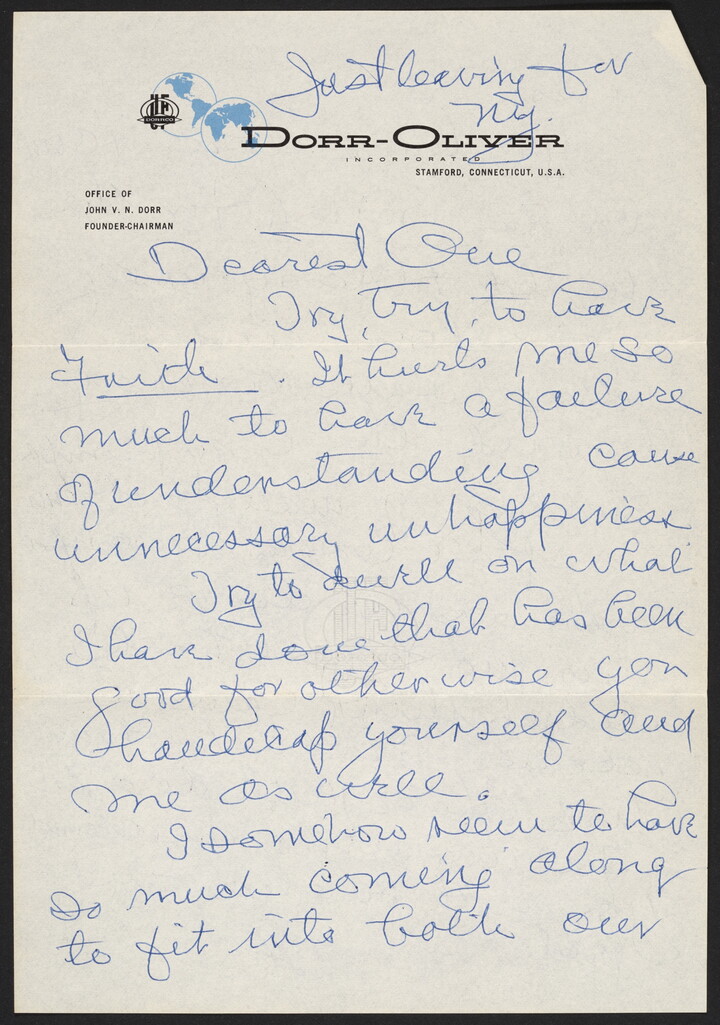 Just leaving for
NY.
DORRCO
DORR-OLIVER
INCORPORATED
STAMFORD, CONNECTICUT, U.S.A.
OFFICE OF
JOHN V. N. DORR
FOUNDER-CHAIRMAN
Dearest One
Try, try, to have
Faith. It hurts me so
much to have a failure
of understanding cause
unnecessary unhappiness
Try to dwell on what
I have done that has been
good for otherwise you
handicap yourself and
me as well.
I somehow seem to have
so much coming along
to fit into both our